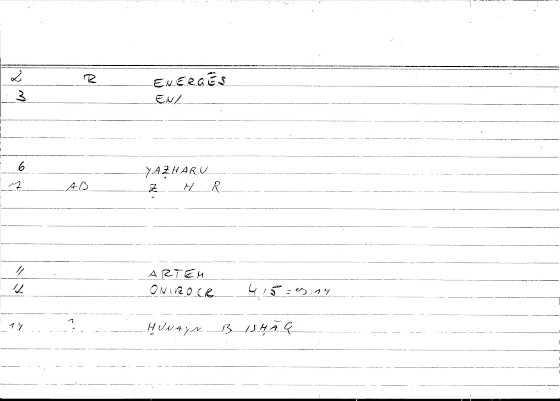 2 R ENERGĒS
3 EN/
6 YAẒHARU
7 AB Ẓ H R
11 ARTEM
12 ONIROCR 4,5 =
14 ? ḤUNAYN B ISḤĀQ